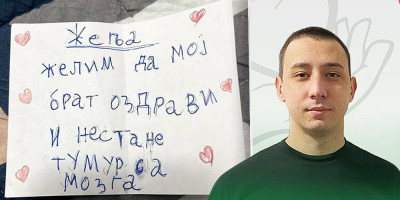 Жеља
желим да мој
брат оздрави
и нестане
тумур са
мозга